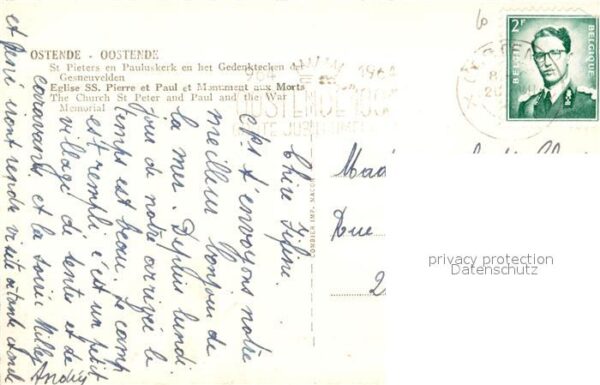 OSTENDE - OOSTENDE
St Pieters en Pauluskerk en het Gedenkteken der
Gesneuvelden
Eglise SS. Pierre et Paul et Monument aux Morts
The Church St Peter and Paul and the War
Memorial
964 1964
OOSTENDE
2F
BELGIE-BELGIQUE
6
COMBIER IMP. MACON
Chère Fifine
t'envoyons notre
meilleur bonjour de
la mer. Depuis lundi
jour de notre arrivée le
temps est beau. Le camp
est rempli c'est un petit
village de tentes et de
caravans et la soirée Milly
et iront rendre visite
Andrée
Mad
Rue
2
privacy protection
Datenschutz